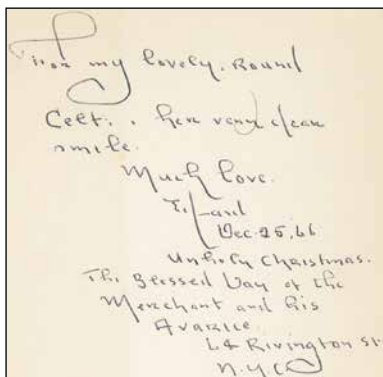 For my lovely. Round
Celt. . her very clean
smile.
Much love.
Dec. 25, 66
Unholy Christmas.
The Blessed Day of the
Merchant and his
Avarice.
64 Rivington St.
N.Y.C.